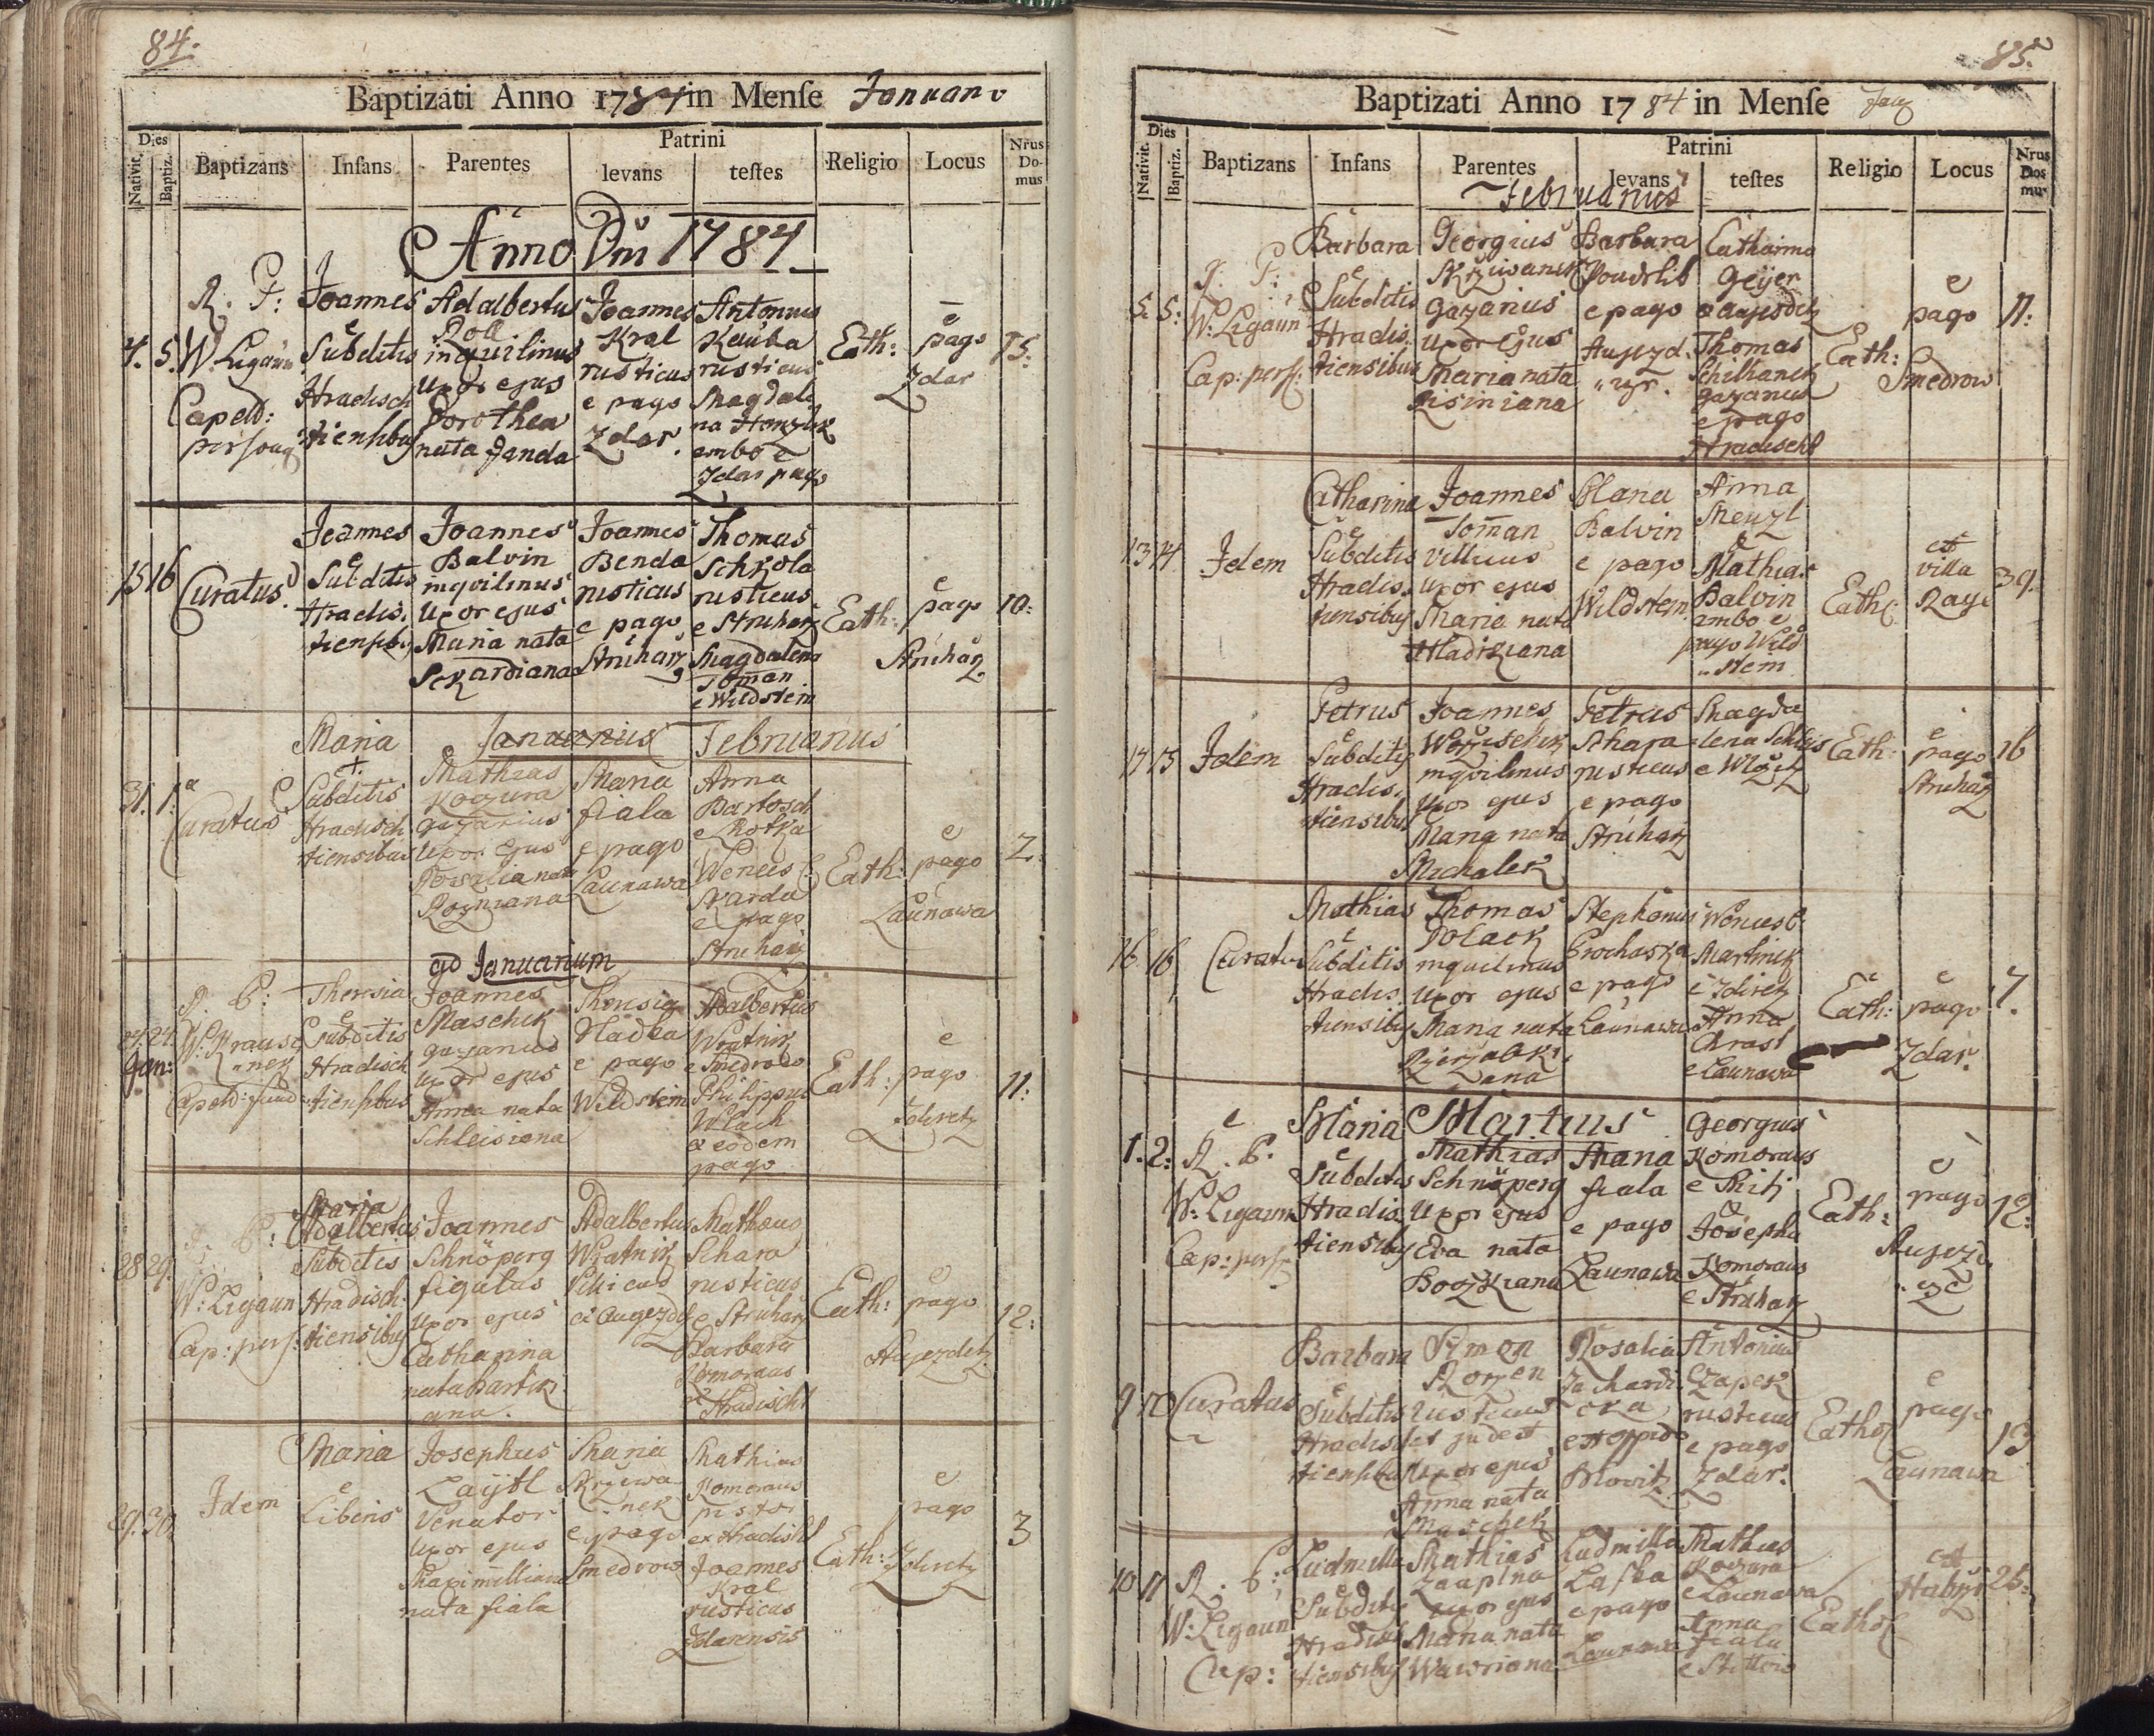 84.
Baptizati Anno 1784 in Mense Januario
Dies
Nativit.
Baptiz.
Baptizans
Infans
Parentes
Patrini
levans
testes
Religio
Locus
Nrus Do-
mus
Anno Dni 1784
4. 5.
R. P:
W. Ligaun
Capeld:
Joannes
e
Subditis
Hradisch
tiensibus
Adalbertus
Poll
inquilinus
Uxor ejus
Dorothea
nata Janda
Joannes
Kral
rusticus
e pago
Zdar.
Antonius
Kauba
rusticus
Magdale
na Honzik
ambo e
Zdar pago
Cath:
e
pago
Zdar
15:
15 16
Curatus
Joannes
e
Subditis
Hradis.
tiensibus
Joannes
Balvin
inquilinus
Uxor ejus
Maria nata
Joannes
Benda
rusticus
e pago
Struharz
Thomas
Schkola
rusticus
e Struharz
Magdalena
Toman
e Wildstein
Cath:
e
pago
Struharz
10:
Januarius Februarius
31. 1.
Curatus
Maria
Subditis
Hradisch
tiensibus
Mathias
Koczura
gazarius
Uxor ejus
Rosalia nata
Maria
Fiala
e pago
Launawa
Anna
Bartosch
Wencesl:
Skarda
e pago
Struharz
Cath:
e
pago
Launawa
2.
ad Januarium
24. 24.
Jan:
R. P:
Capeld: fund:
Theresia
e
Subditis
Hradisch
tiensibus
Joannes
Maschek
gazarius
Uxor ejus
Anna nata
Schleisiana
Theresia
Hladka
e pago
Wildstein
Adalbertus
Wratnik
e Smedrow
Philippus
Wlach
ex eodem
pago
Cath:
e
pago
Zdiretz
11:
28 29.
W: Ligaun
Cap: pers:
Maria
Adalbertus
Subditis
Hradisch.
tiensibus
Joannes
Schnöperg
figulus
Uxor ejus
Catharina
nata Bartik
ana.
Adalbertus
Wratnik
Villicus
ex Augezdetz
Mathaus
Schara
rusticus
e Struharz
Barbara
Komoraus
e Hradischt
Cath:
e
pago
Aujezdetz
12:
29. 30.
Idem
Maria
e
Liberis
Josephus
Laÿbl
Venator
Uxor ejus
Maximilliana
nata Fiala
Maria
Skrziwa
nek
e pago
Smedrow
Mathias
Komoraus
pistor
ex Hradischt
Joannes
Kral
rusticus
Zdarensis
Cath:
e
pago
Zdiretz
3
85.
Baptizati Anno 1784 in Mense
Dies
Nativit.
Baptiz.
Baptizans
Infans
Parentes
Patrini
levans
testes
Religio
Locus
Nrus
Do-
mus
Februarius
5. 5:
P:
W: Ligaun
Cap: pers:
Barbara
e
Subditis
Hradis.
tiensibus
Georgius
Skrziwanek
Gazarius
Uxor Ejus
Maria nata
Barbara
e pago
Aujezd.
Catharina
Geÿer
Thomas
gazarius
e pago
Hradischt
Cath:
e
pago
Smedrow
11:
13 14
Idem
Catharina
e
Subditis
Hradis.
tiensibus
Joannes
Toman
Villicus
Uxor ejus
Maria nata
Hladikiana
Balvin
e pago
Wildstein
Anna
Menzl
Mathias
Balvin
ambo e
pago Wild
stein
Cath:
ex
villa
39.
Idem
Petrus
e
Subditis
Hradis.
tiensibus
Joannes
inquilinus
Uxor ejus
Maria nata
Michalek
Petrus
Schara
rusticus
e pago
Struharz
Magda
lena Schleis
Cath:
e
pago
Struharz
16
16 16
Curatus
Mathias
e
Subditis
Hradis.
tiensibus
Thomas
Polack
inquilinus
Uxor ejus
Maria nata
Stephanus
Prochaska
e pago
Launawa
Wencesl:
Martinek
e Zdiretz
Anna
Chrast
e Launawa
Cath:
e
pago
Zdar.
7.
Martius
1. 2:
R. P.
W: Ligaun
Cap: pers:
Maria
e
Subditis
Hradis.
tiensibus
Mathias
Schnöperg
Uxor ejus
Eva nata
Maria
Fiala
e pago
Launawa
Georgius
Komoraus
Josepha
Komoraus
e Struharz
Cath:
e
pago
12:
9 10
Curatus
Barbara
e
Subditis
Hradis
tiensibus
Simon
rusticus
Uxor ejus
Anna nata
Maschek
Rosalia
Antonius
Czapek
rusticus
e pago
Zdar.
Cathol
e
pago
Launawa
13
10 11
R. P:
W: Ligaun
Cap:
Ludmilla
e
Subditis
tiensibus
Mathias
Uxor ejus
Maria nata
Wawriana
Ludmilla
e pago
Launawa
Mathias
Koczura
e Launawa
Anna
Fiala
Cathol
26: